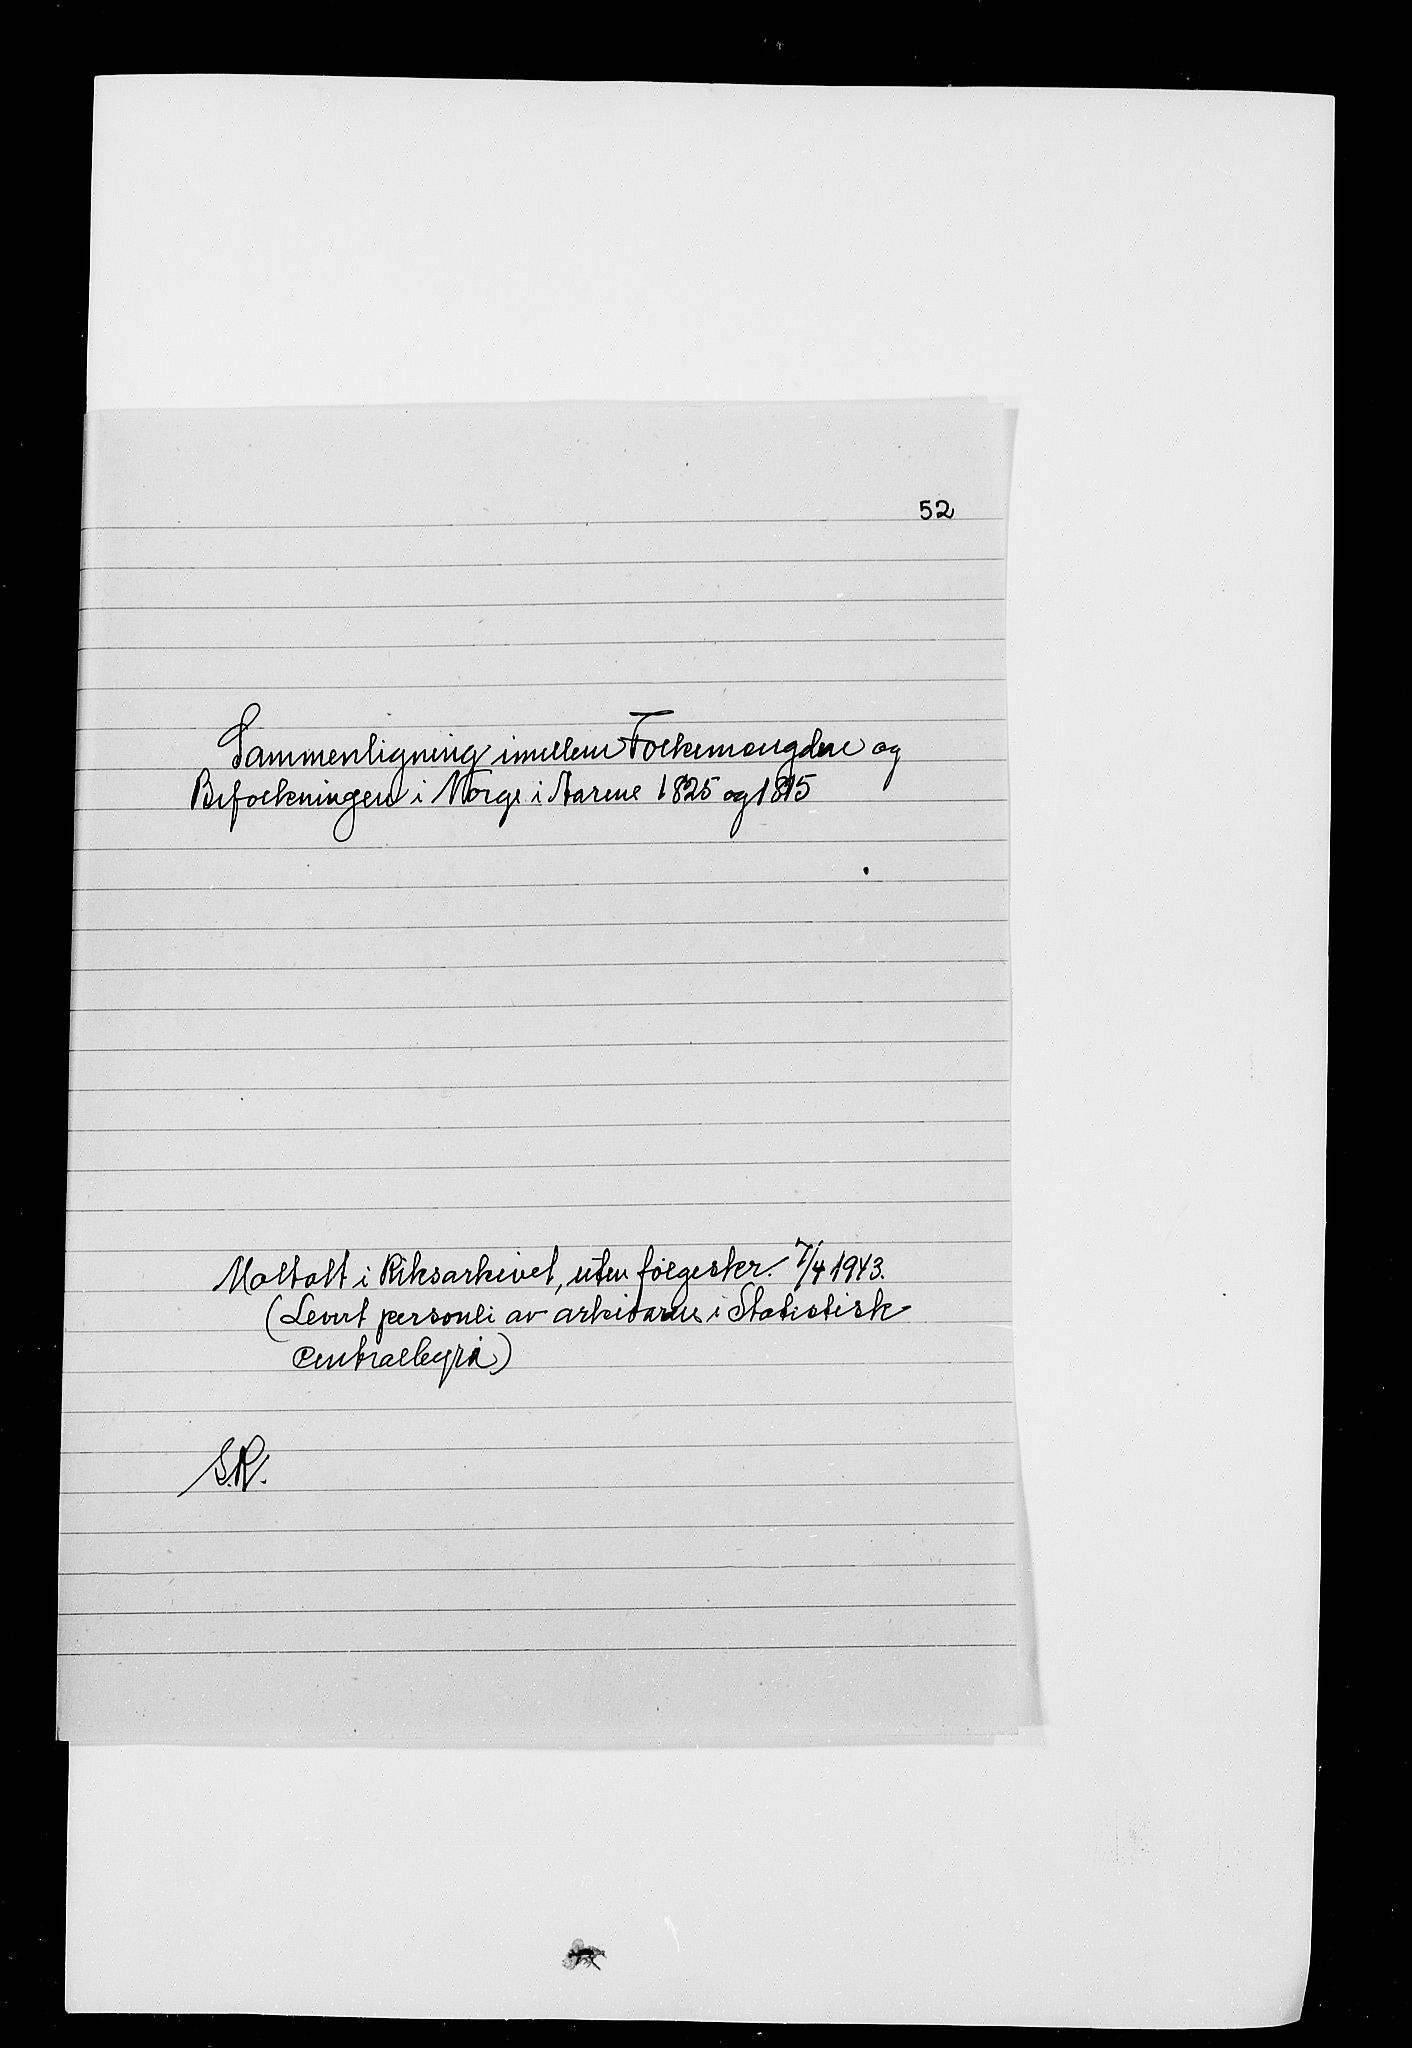 52
Sammenligning imellem Folkemængden og
Befolkningen i Norge i Aarene 1825 og 1815
Mottatt i Riksarkivet, uten følgeskr. 7/4 1943.
(Levert personli av arkivaren i Statistisk
Centralbyrå)
S.R.